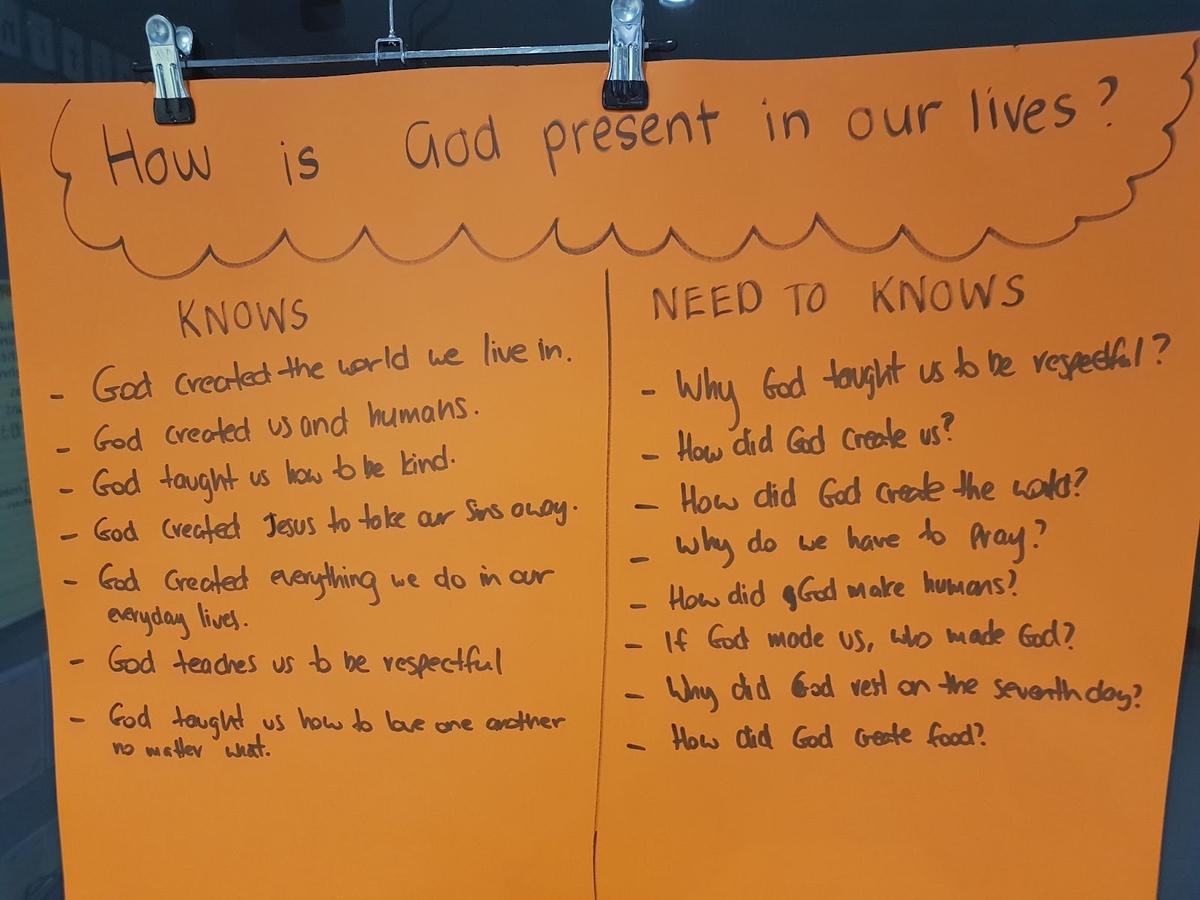 How is God present in our lives?
KNOWS
- God created the world we live in.
- God created us and humans.
- God taught us how to be kind.
- God created Jesus to take our sins away.
- God created everything we do in our
everyday lives.
- God teaches us to be respectful
- God taught us how to love one another
no matter what.
NEED TO KNOWS
- Why God taught us to be respectful?
- How did God create us?
- How did God create the world?
- Why do we have to Pray?
- How did God make humans?
- If God made us, who made God?
- Why did God rest on the seventh day?
- How did God create food?